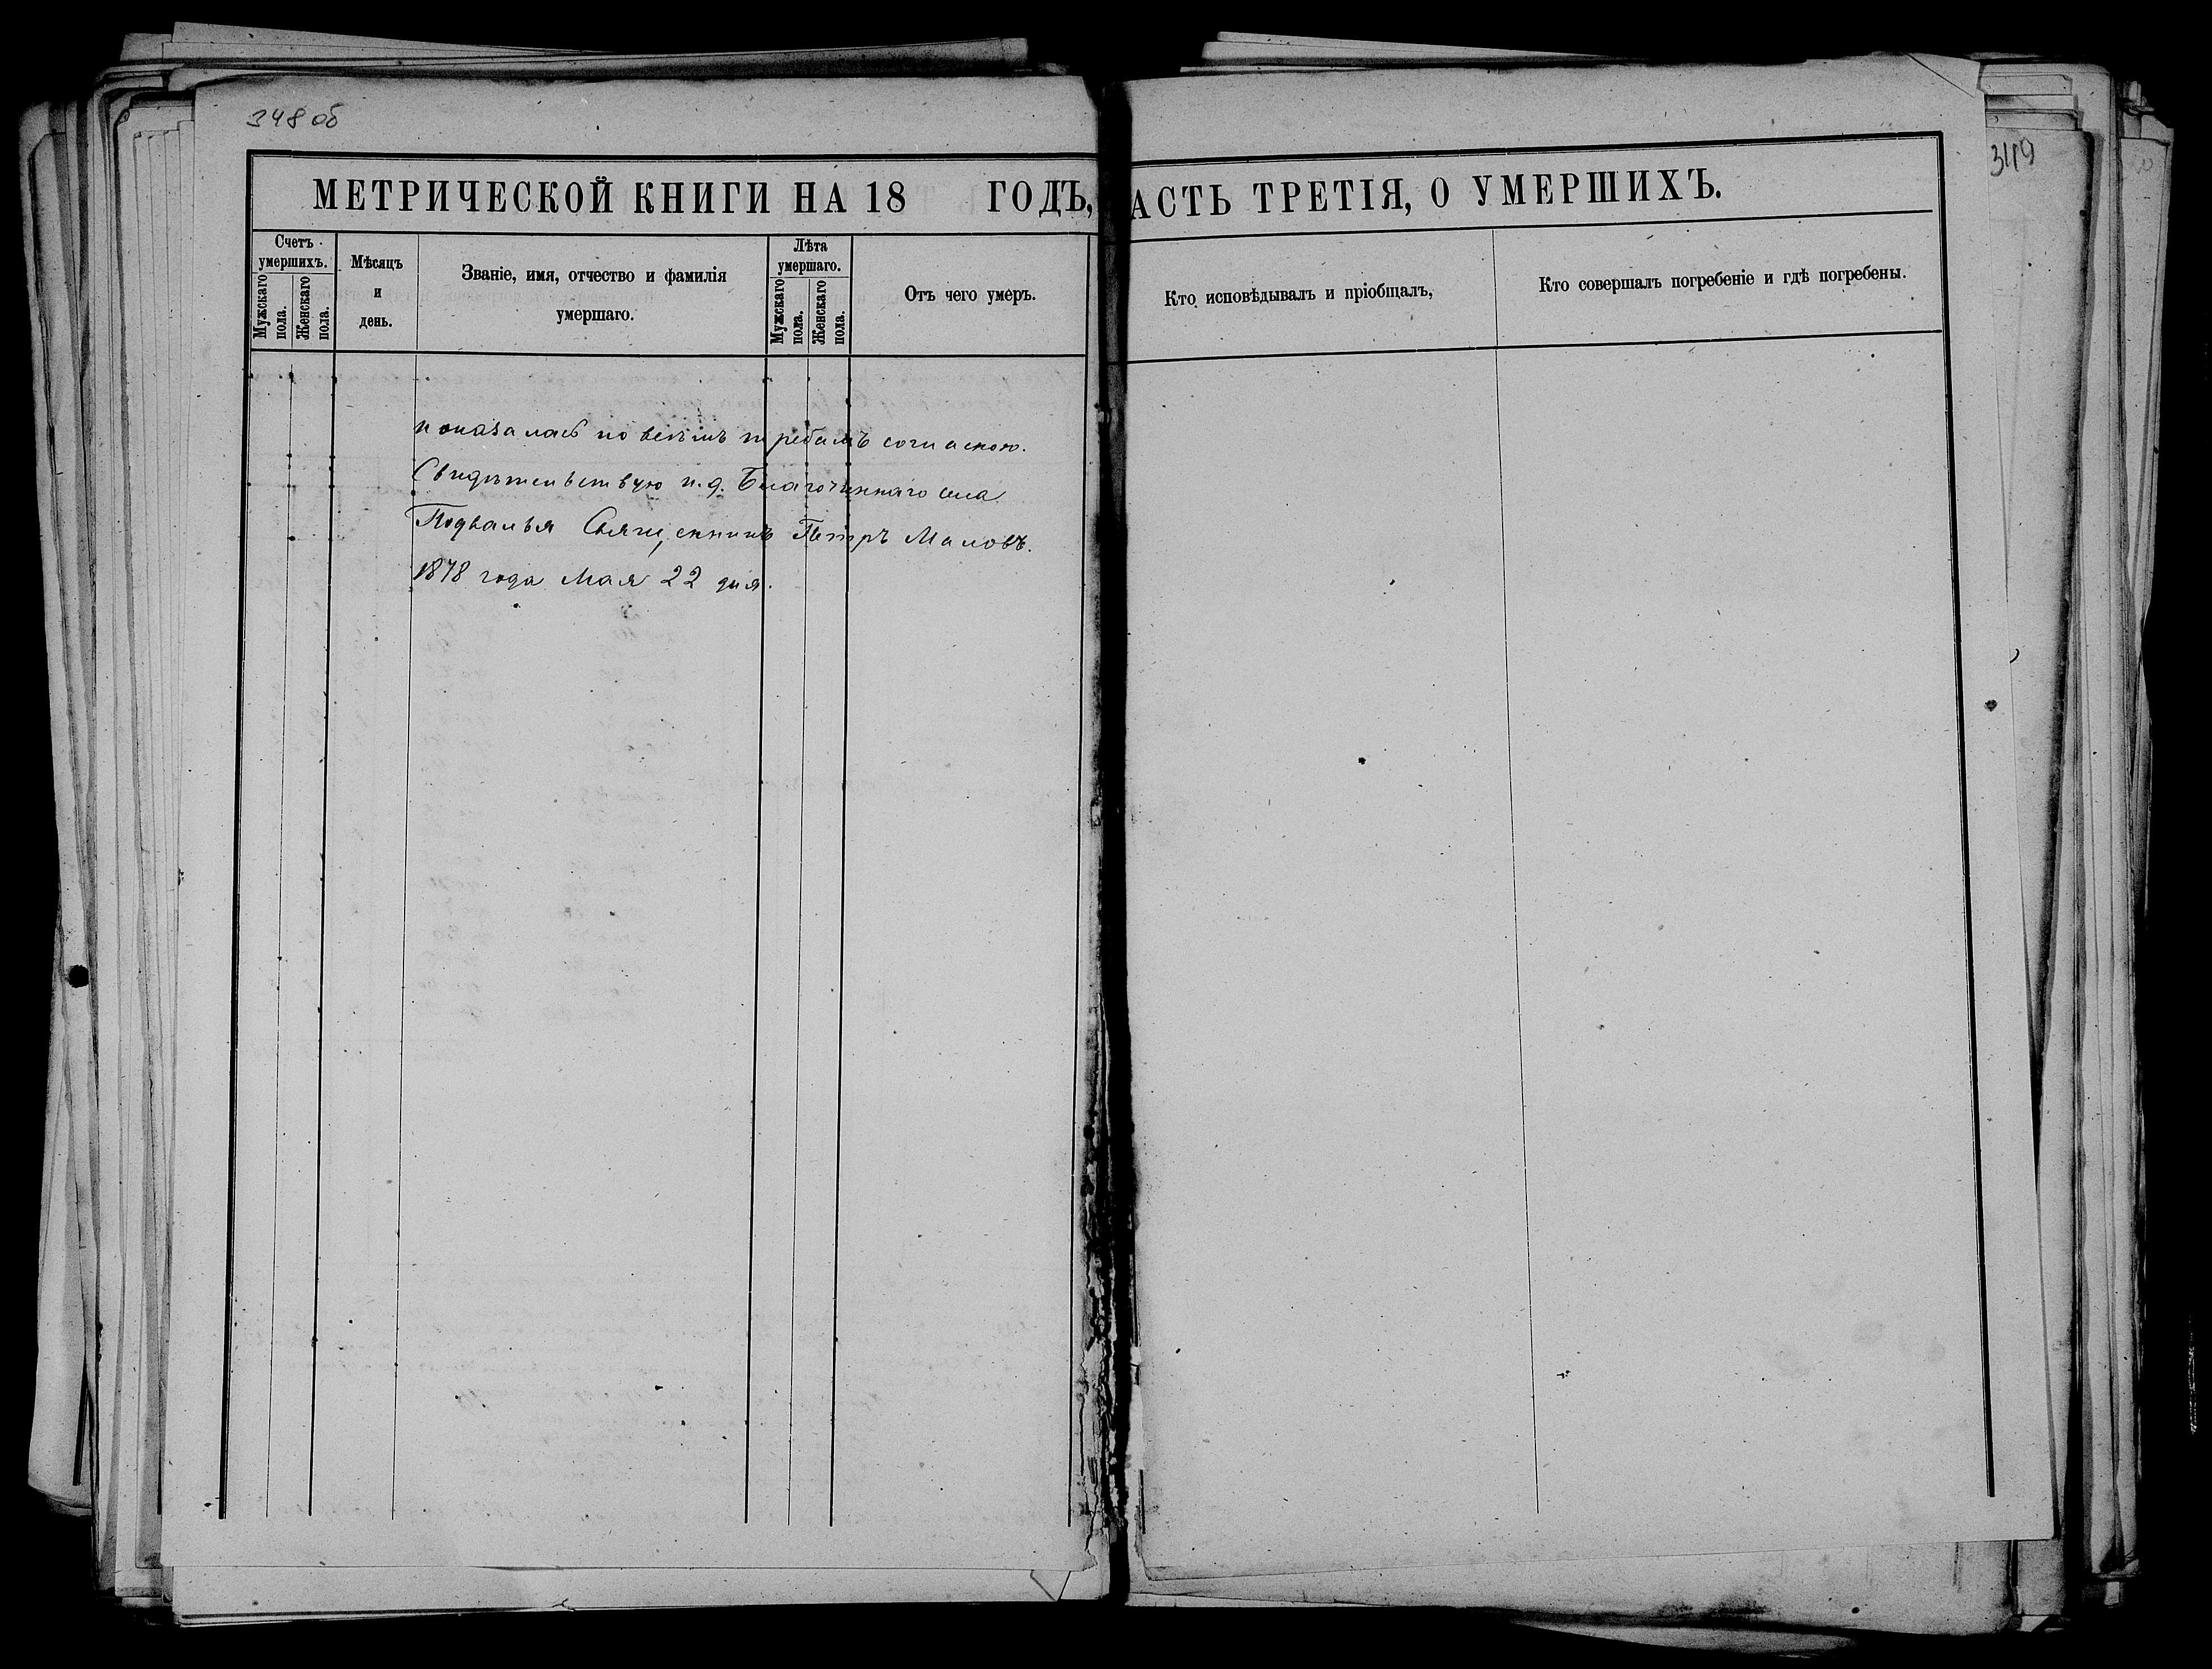 348 об
349
МЕТРИЧЕСКОЙ КНИГИ НА 18 ГОДЪ,
АСТЬ ТРЕТІЯ, О УМЕРШИХЪ.
Счетъ умершихъ.
Мужскаго пола.
Женскаго пола.
Мѣсяцъ и день.
Званіе, имя, отчество и фамилія умершаго.
Лѣта умершаго.
Мужскаго пола.
Женскаго пола.
Отъ чего умеръ.
Кто исповѣдывалъ и пріобщалъ,
Кто совершалъ погребеніе и гдѣ погребены.
показалась по всѣмъ требамъ согласною.
Свидѣтельствую и. д. Благочиннаго села
Подвалья Священникъ Петръ Маловъ.
1878 года Мая 22 дня.